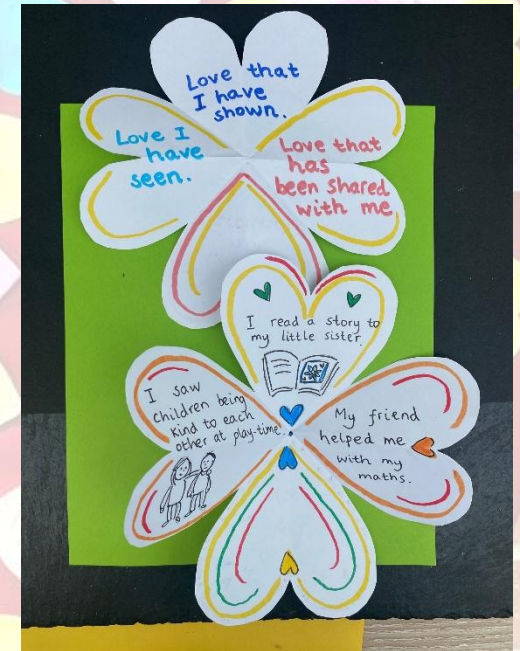 Love that
I have
shown.
Love I
have
seen.
Love that
has
been shared
with me
I read a story to
my little sister.
I saw
children being
kind to each
other at play-time.
My friend
helped me
with my
maths.